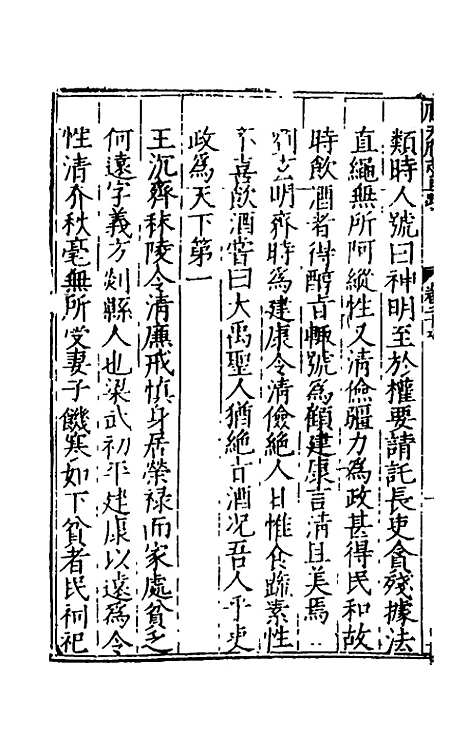 類時人號曰神明至於權要請託長吏貪殘據法
直繩無所阿縱性又清儉彊力為政甚得民和故
時飲酒者得醇旨輒號為顧建康言清且美焉
明齊時為建康令清儉絕人日惟食蔬素性
不喜飲酒嘗曰大禹聖人猶絕旨酒况吾人乎吏
政為天下第一
王沉齊秣陵令清廉戒慎身居榮禄而家處貧乏
何遠字義方剡縣人也梁武初平建康以遠為令
性清介秋毫無所受妻子饑寒如下貧者民祠祀